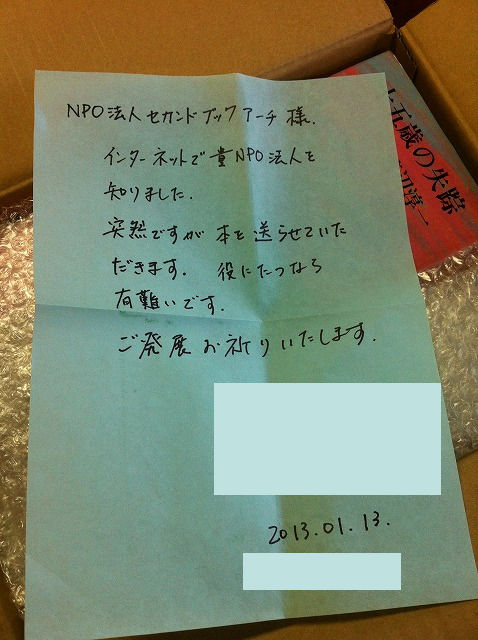 NPO法人セカンドブックアーチ様.
インターネットで貴NPO法人を
知りました.
突然ですが本を送らせていた
だきます. 役にたつなら
有難いです.
ご発展お祈りいたします.
2013.01.13.
十五歳の失踪
辺淳一